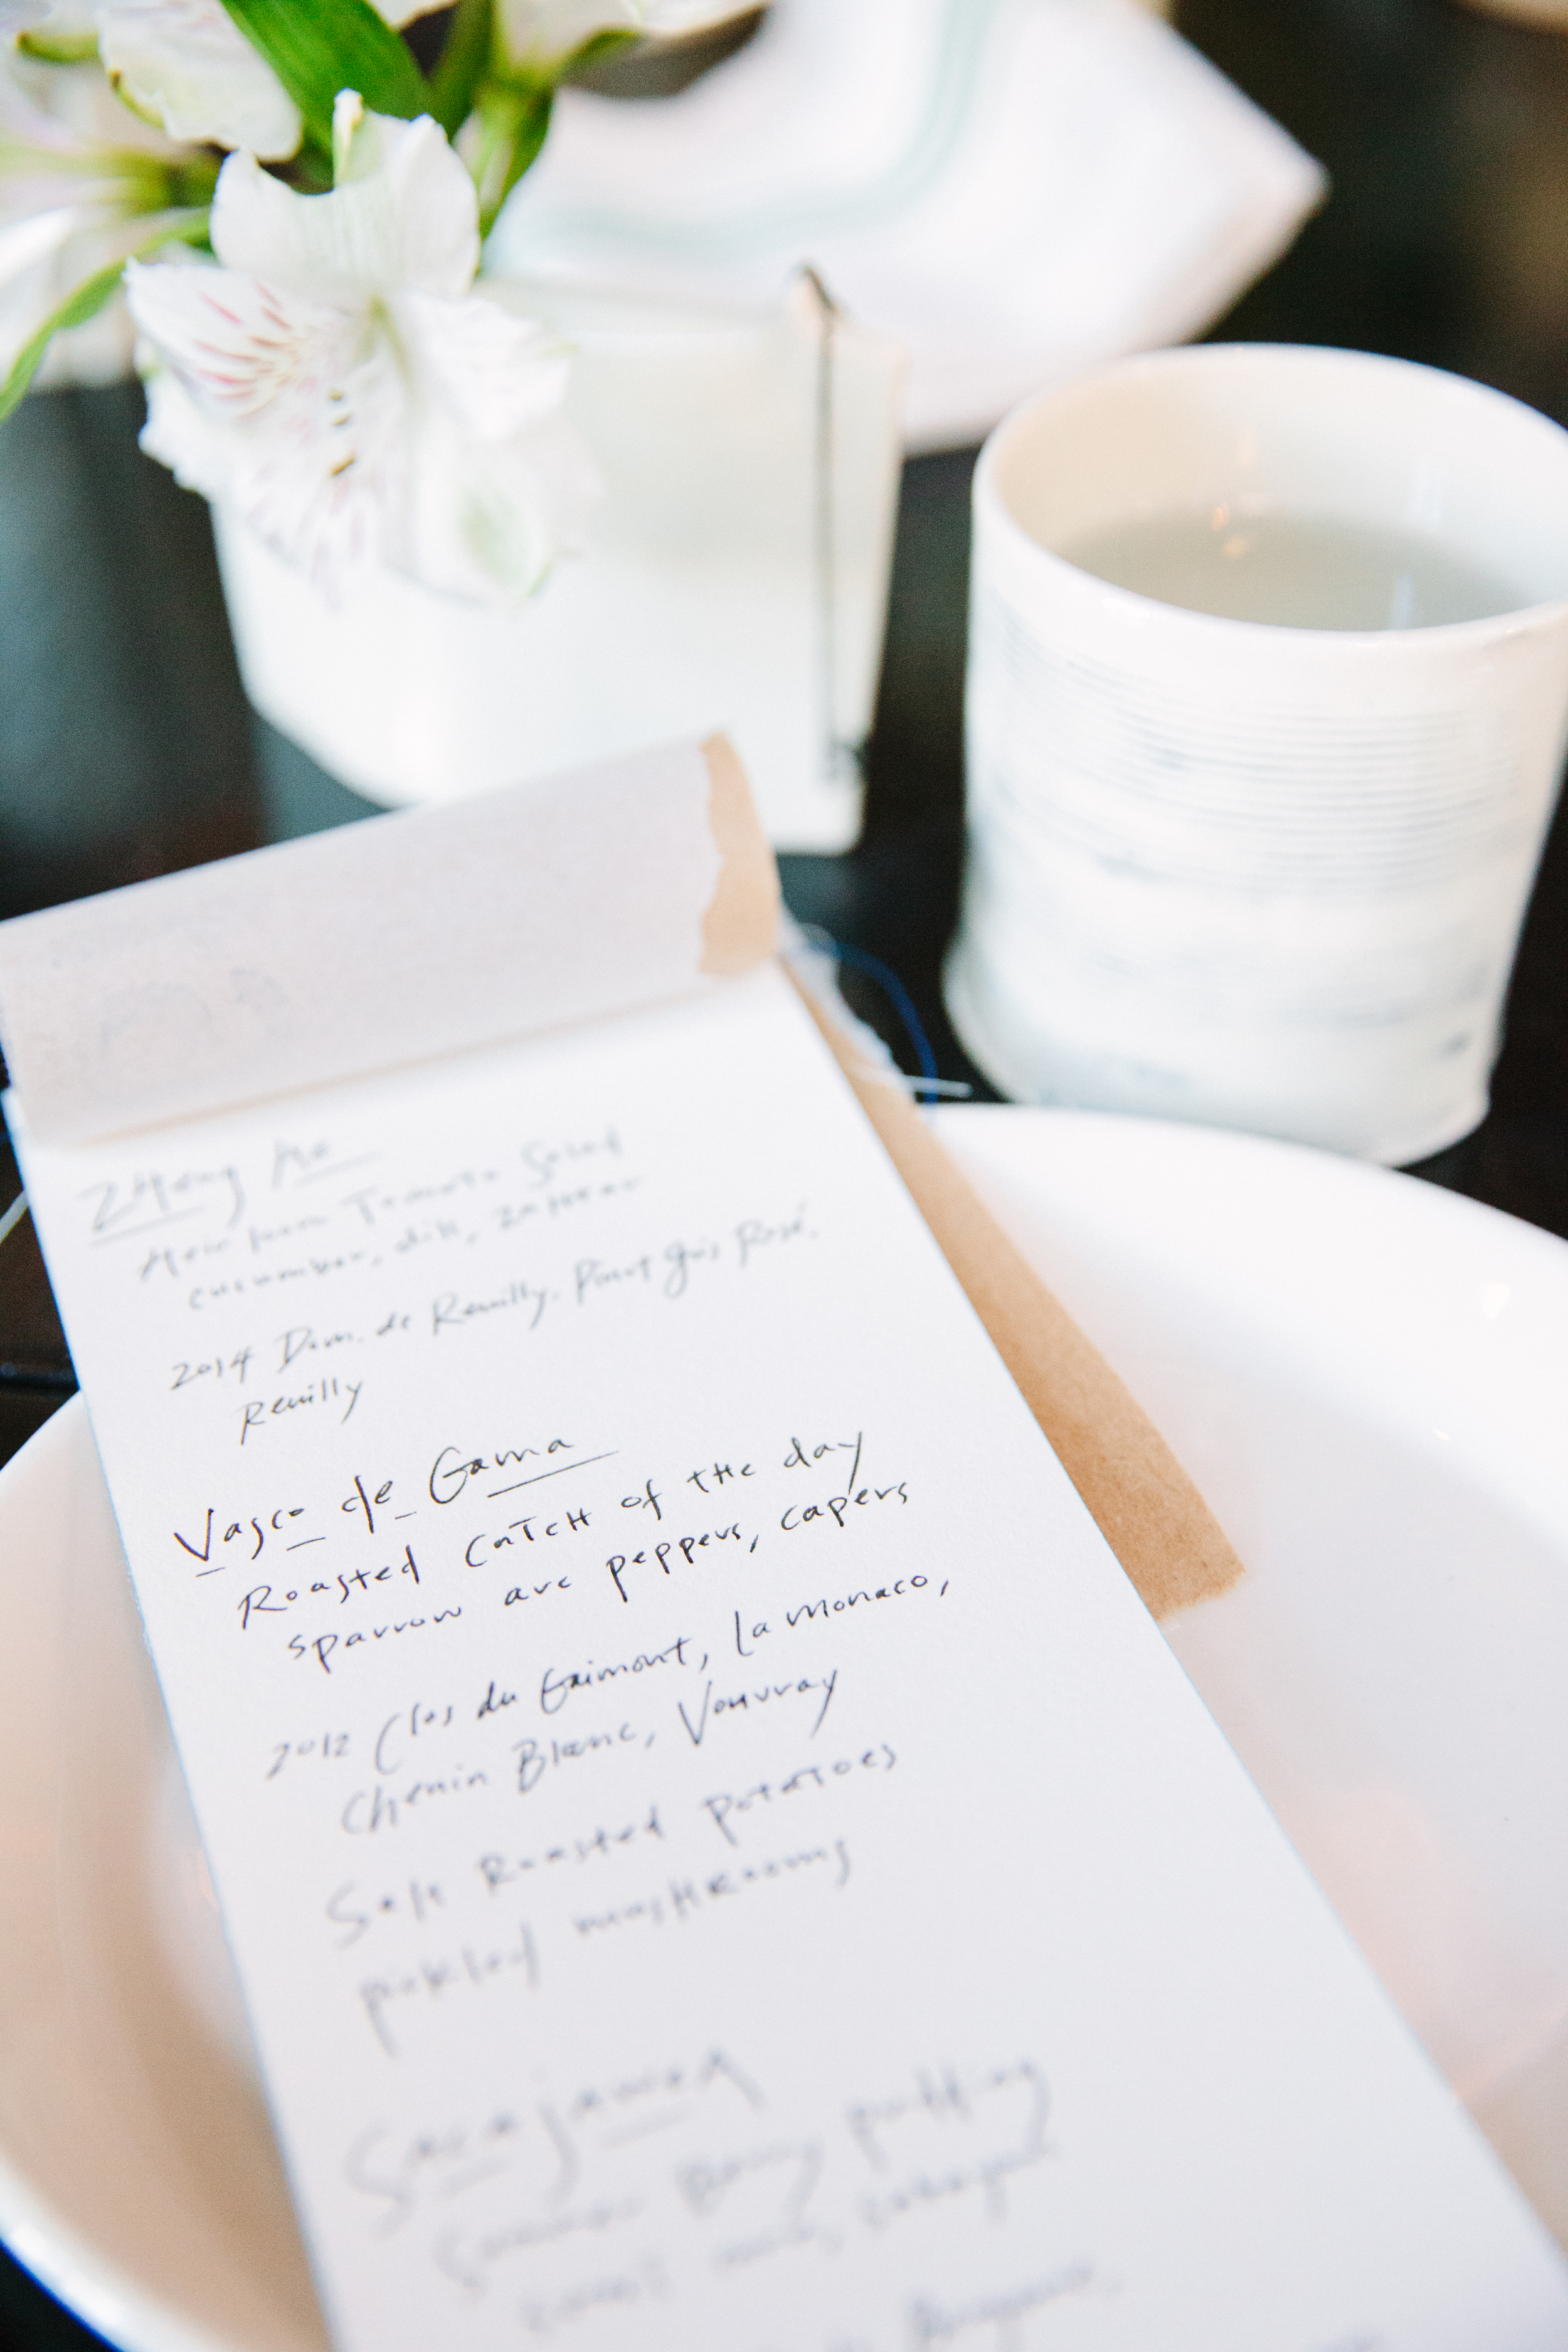 Zheng He
Heirloom Tomato Salad
cucumber, dill, zahtar
2014 Dom. de Reuilly, Pinot Gris Rosé,
Reuilly
Vasco de Gama
Roasted catch of the day
sparrow arc peppers, capers
2012 Clos du Gaimont, La Monaco,
Chenin Blanc, Vouvray
Salt Roasted potatoes
pickled mushrooms
Sacajawea
Summer Berry pudding